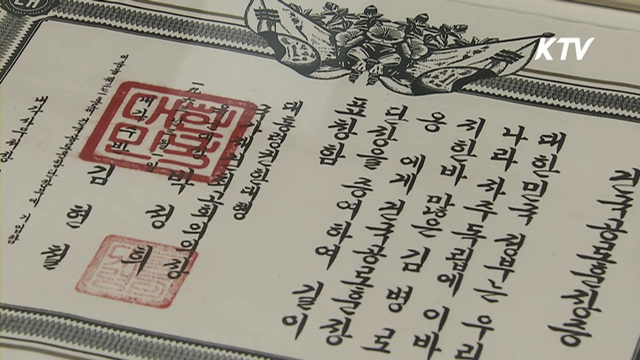 KTV
건국공로훈장증
대한민국 정부는 우리
나라 자주독립에 이바
지한바 많은 김 병 로
옹 에게 건국공로훈장
단장을 증여하여 길이
표창함
대통령권한대행
국가재건최고회의의장
박 정 희
내각수반
김 현 철